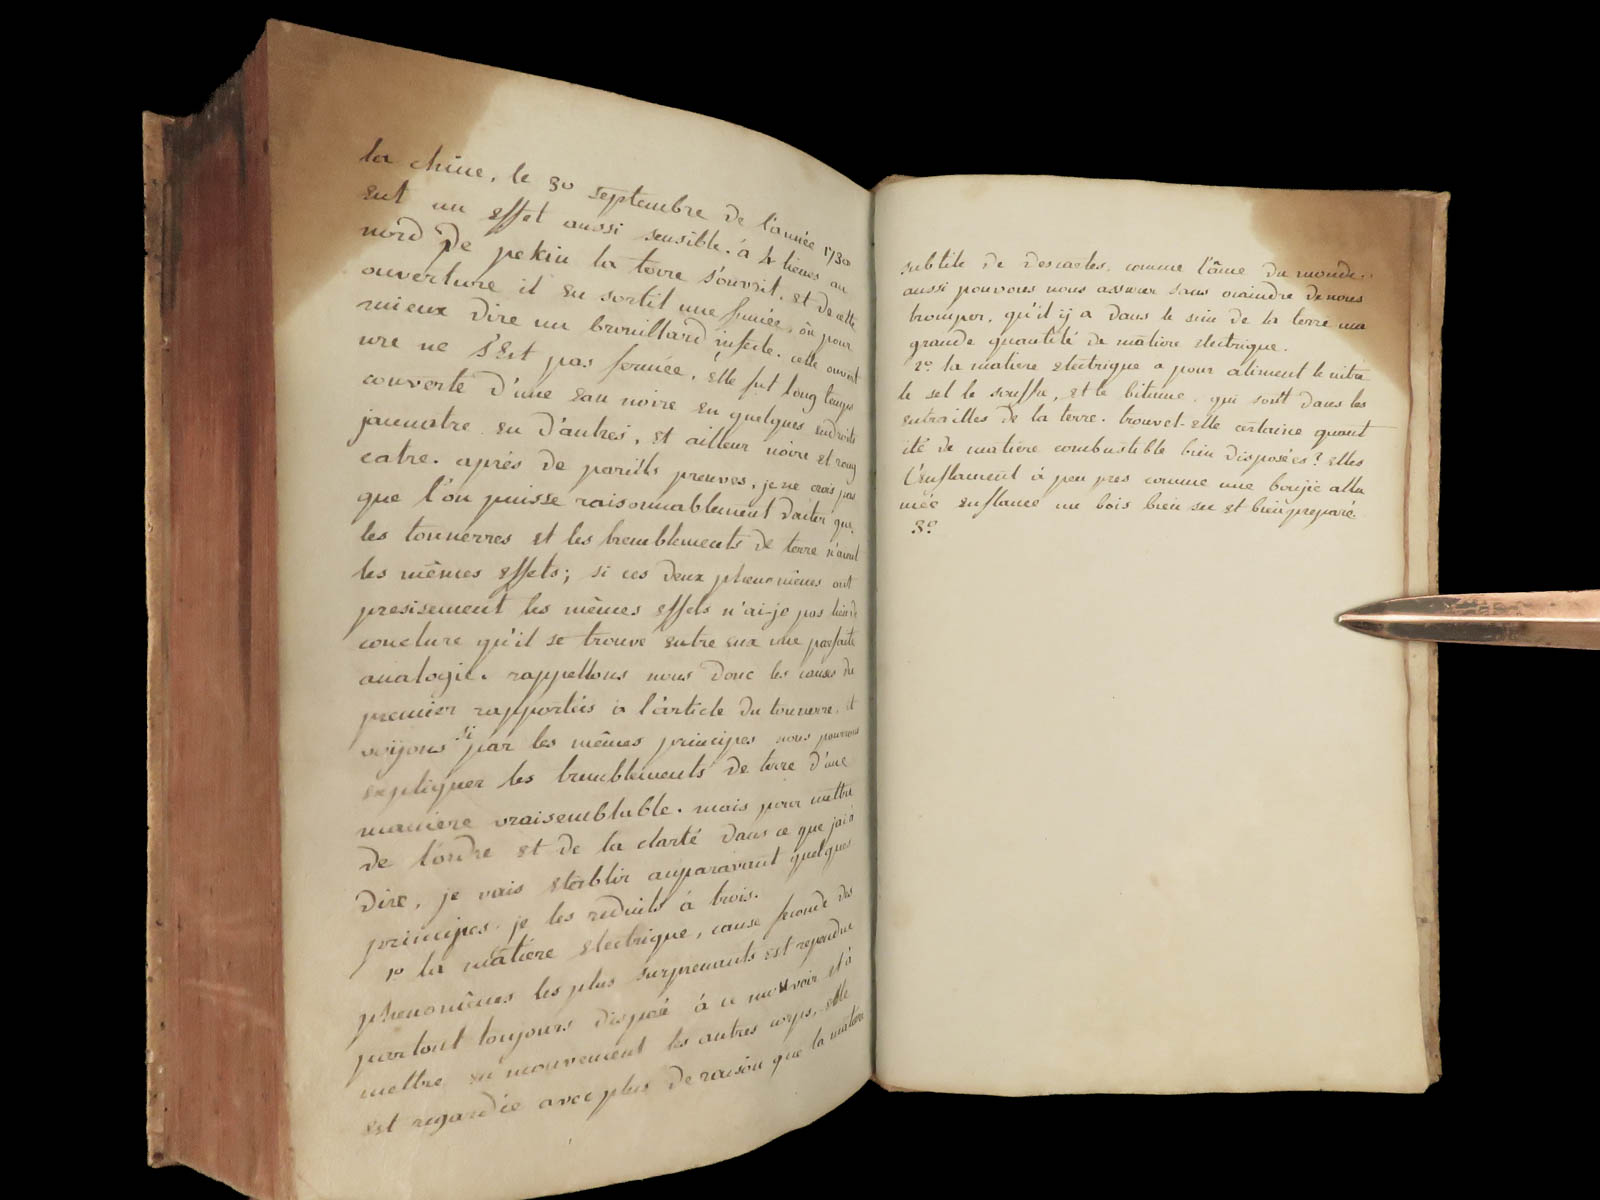 la chine, le 30 septembre de l'année 1730
eut un effet aussi sensible. à 4 lieues au
nord de pekin la terre s'ouvrit, et de cette
ouverture il en sortit une fumée, ou pour
mieux dire un brouillard infecte. cette ouvert
ure ne s'est pas fermée, elle fut long temps
couverte d'une eau noire en quelques endroits
jaunatre en d'autres, et ailleur noire et roug
eatre. aprés de pareils preuves, je ne crois pas
que l'on puisse raisonnablement douter que
les tonnerres et les tremblements de terre n'aient
les mêmes effets; si ces deux phenomênes ont
presisement les mêmes effets n'ai-je pas lieu de
conclure qu'il se trouve entre eux une parfaite
analogie. rappellons nous donc les causes du
premier rapportées à l'article du tonnerre, et
voijons si par les mêmes principes nous pourrons
expliquer les tremblements de terre d'une
maniere vraisemblable. mais pour mettre
de l'ordre et de la clarté dans ce que jai à
dire, je vais etablir auparavant quelques
principes. je les reduits à trois.
1º la matiére electrique, cause seconde des
phenomênes les plus surprenants est repandue
partout toujours disposé à ce mouvoir et à
mettre en mouvement les autres corps, elle
est regardée avec plus de raison que la matiere
subtile de descartes, comme l'âme du monde.
aussi pouvons nous assurer sans craindre de nous
tromper, qu'il ij a dans le sein de la terre une
grande quantité de matiére electrique.
2º la matiere electrique a pour aliment le nitre
le sel le souffre, et le bitume, qui sont dans les
entrailles de la terre. trouvet-elle certaine quant
ité de matiére combustible bien disposées? elles
l'enflament à peu pres comme une boujie allu
mée enflame un bois bien sec et bien preparé.
3º